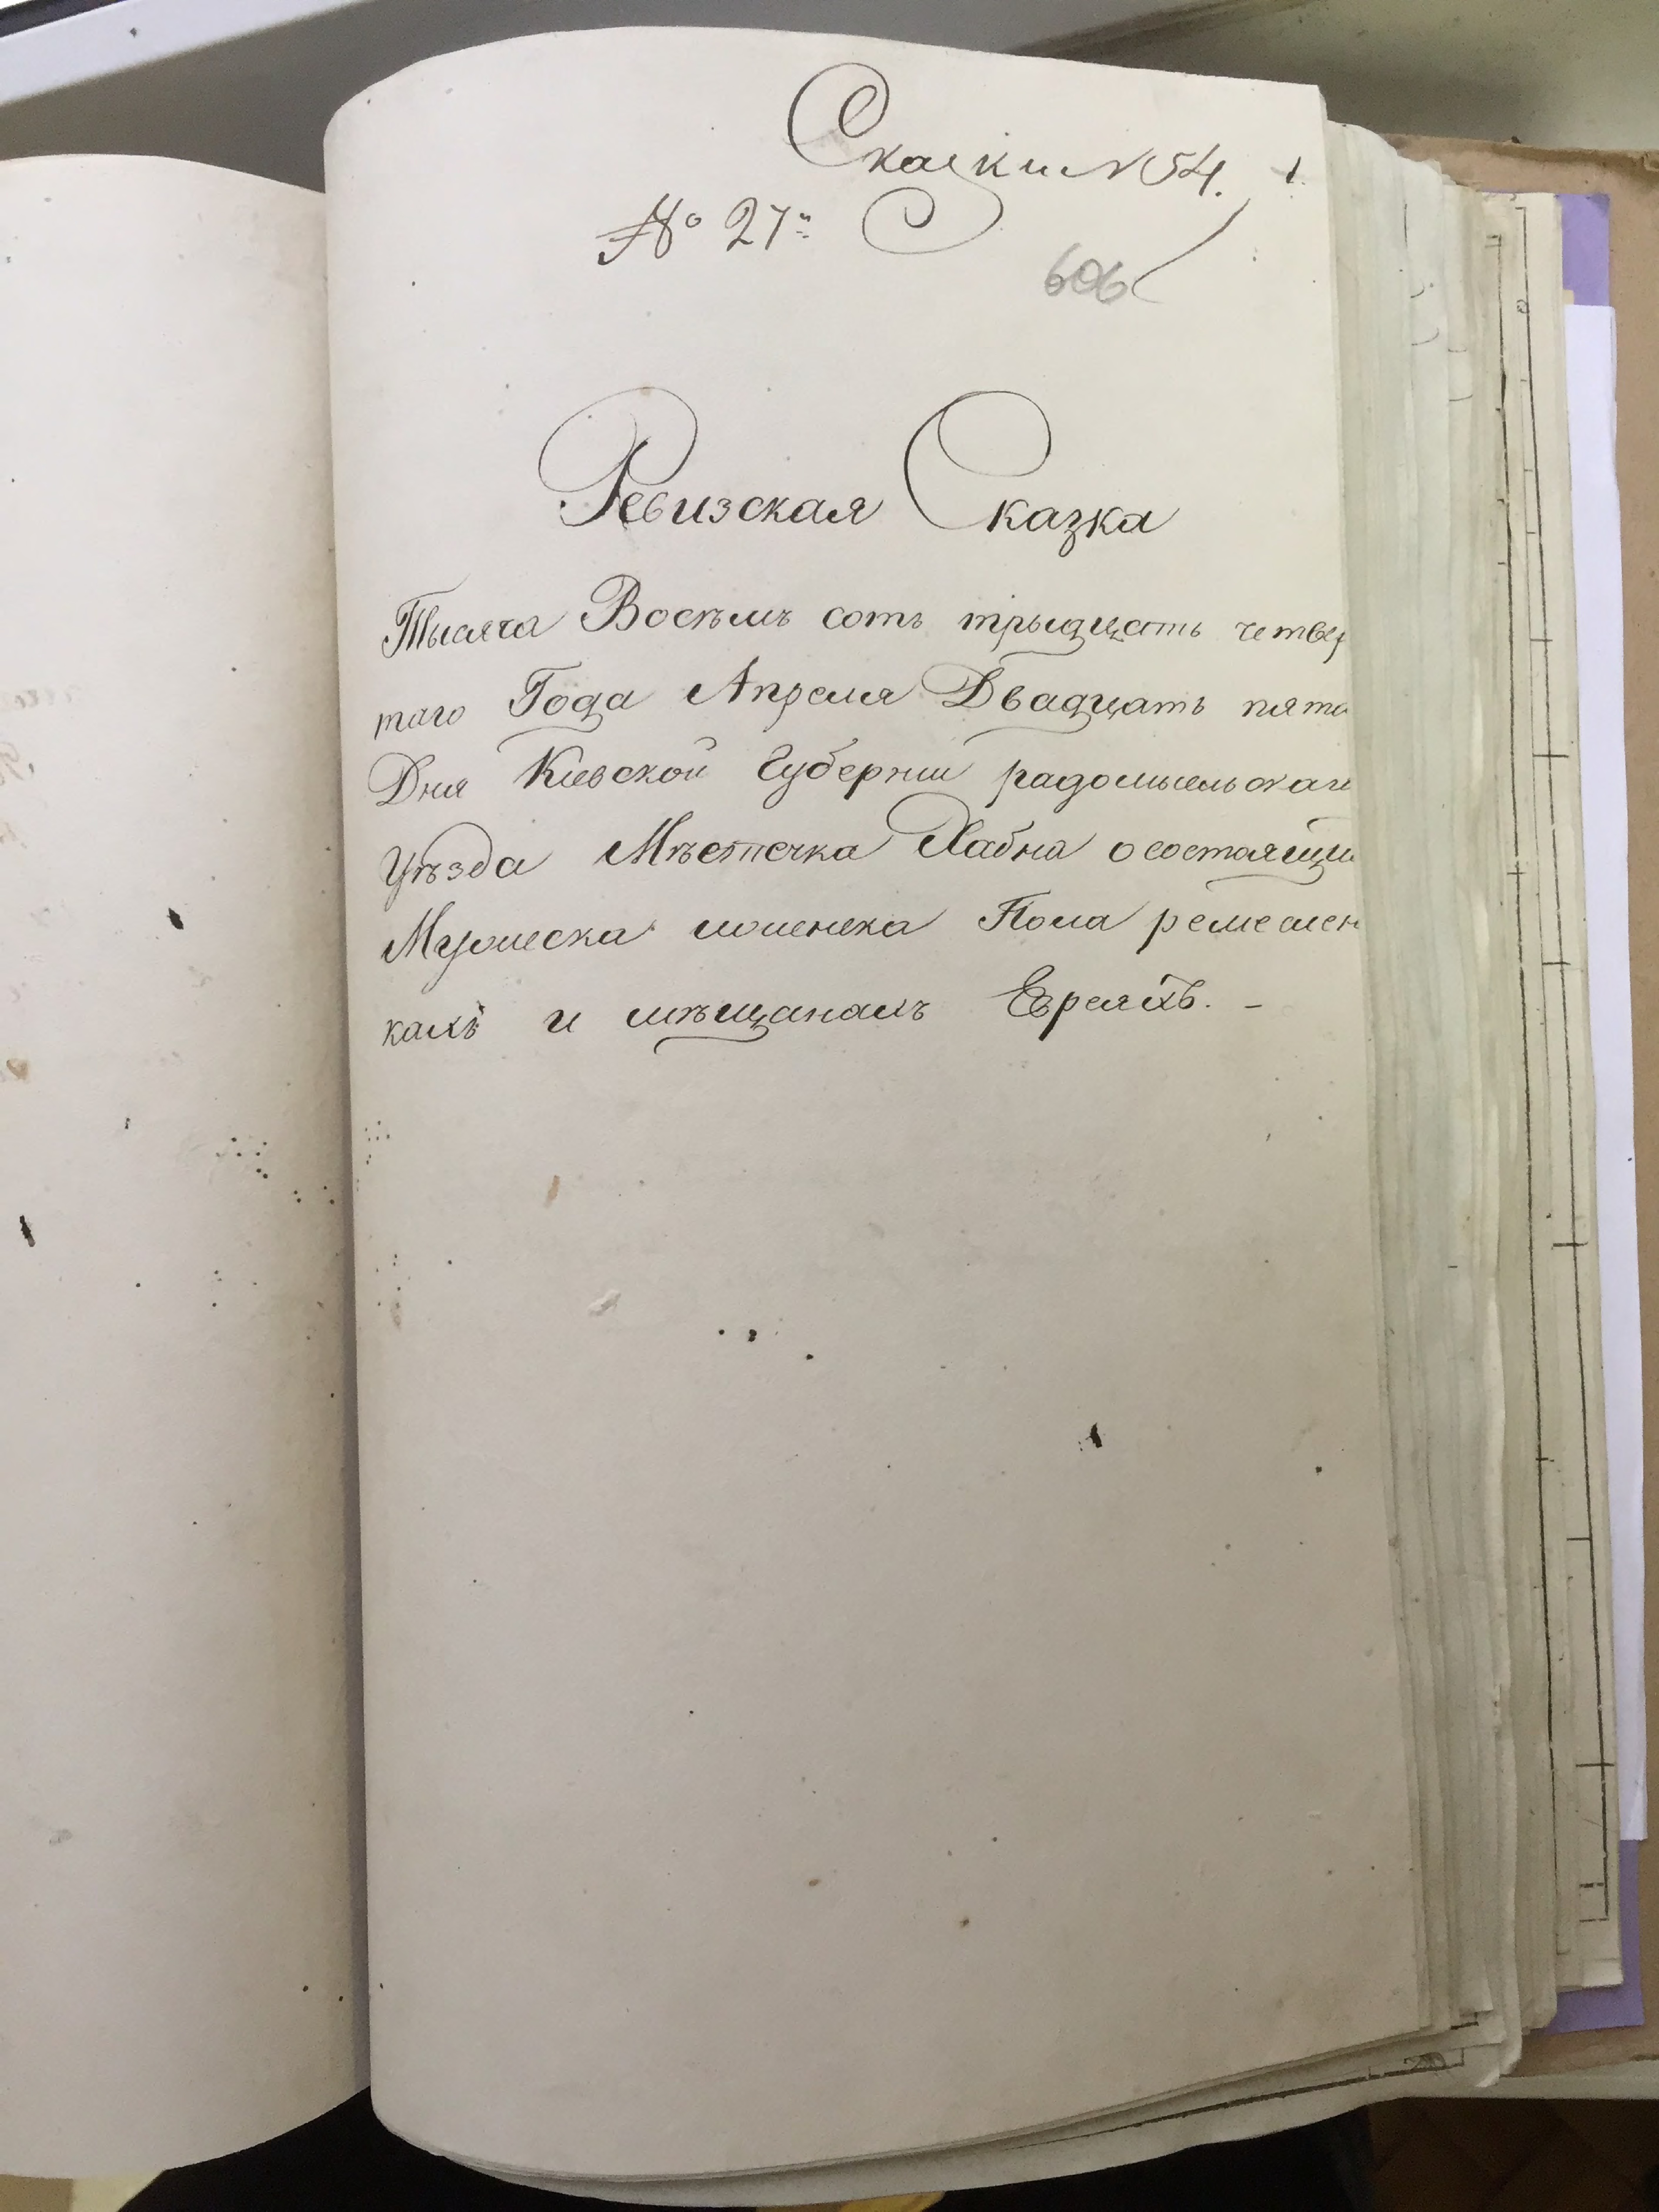 Сказки N 54. 1.
№ 27
606
Ревизская Сказка
Тысяча Восѣмъ сотъ трыдцать четвер
таго Года Апреля Двадцать пято
Дня Киевской Губернии радомысльскаг
Уѣзда Мѣстечка Хабна о состоящи
Мужеска и женска Пола ремеслен
кахъ и мѣщанахъ Евреяхъ. –